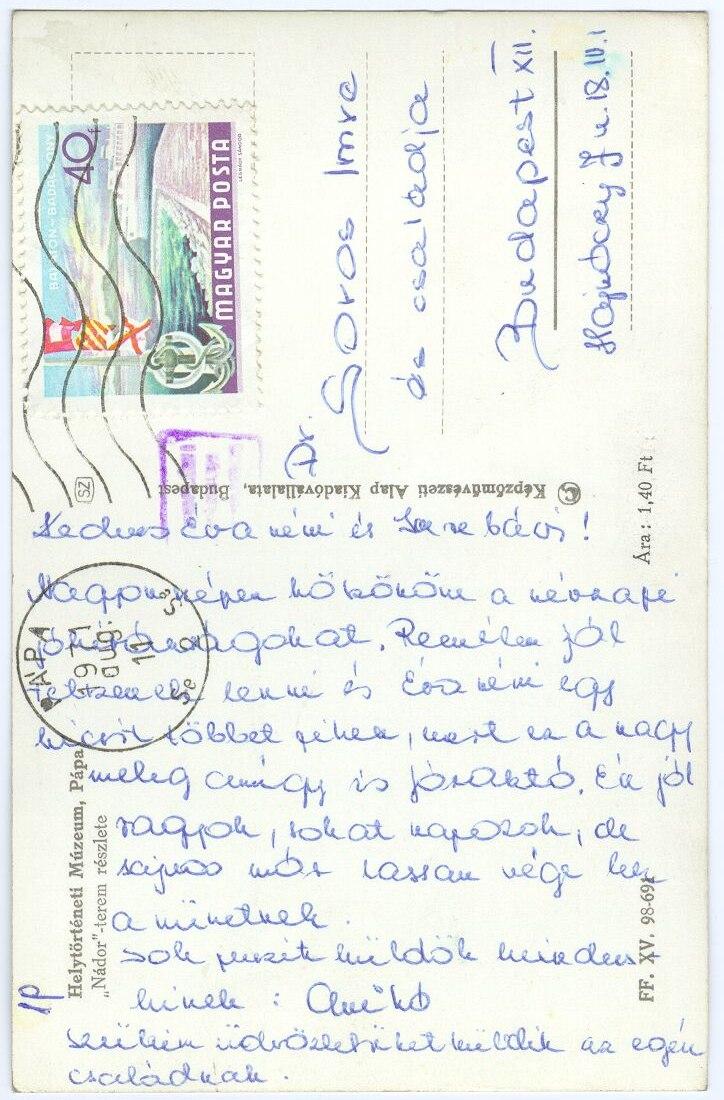 BALATON - BADACSONY
40f
MAGYAR POSTA
LÉGRÁDY SÁNDOR
Dr. Soros Imre
és családja
Budapest XII.
Hajnóczy J u. 18. IV. 1
SZ
Képzőművészeti Alap Kiadóvállalata, Budapest
Ára: 1,40 Ft
Kedves Éva néni és Imre bácsi!
Nagyon szépen köszönöm a névnapi
jókívánságokat. Remélem jól
tetszenek lenni és Éva néni egy
kicsit többet pihen, mert ez a nagy
meleg amúgy is fárasztó. Én jól
vagyok, sokat napozok, de
sajnos már lassan vége lesz
a szünetnek.
Sok puszit küldök minden-
kinek: Anikó
Szüleim üdvözletüket küldik az egész
családnak.
PÁPA
1971 aug. 11
Helytörténeti Múzeum, Pápa
„Nádor"-terem részlete
FF. XV. 98-691